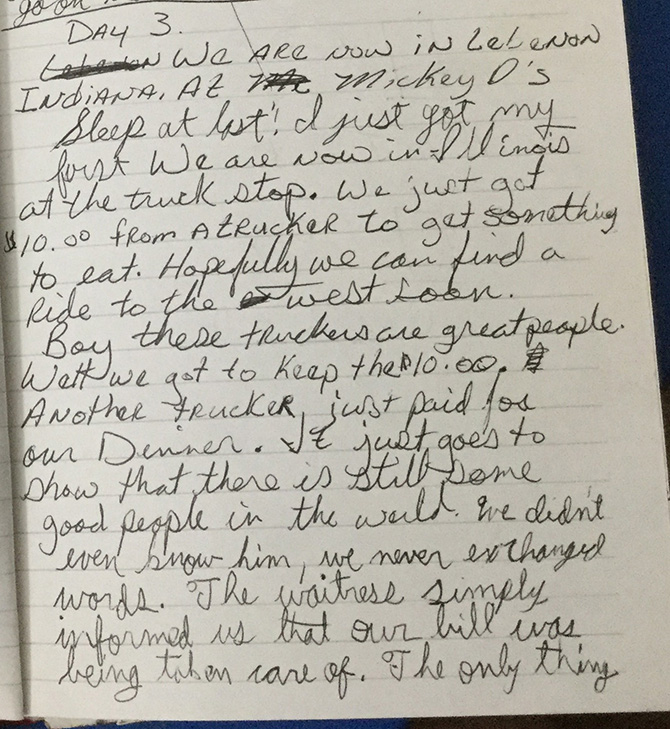 go on
DAY 3.
We ARE NOW iN LebeNON
INDiANA. At Mickey D's
Sleep at last! I just got my
first We are now in Illinois
at the truck stop. We just got
$10.00 from A tRucKeR to get something
to eat. Hopefully we can find a
Ride to the west soon.
Boy these truckers are great people.
Well we got to Keep the $10.00.
ANotheR tRucKeR just paid for
our Dinner. It just goes to
show that there is still some
good people in the world. We didn't
even know him, we never exchanged
words. The waitress simply
informed us that our bill was
being taken care of. The only thing